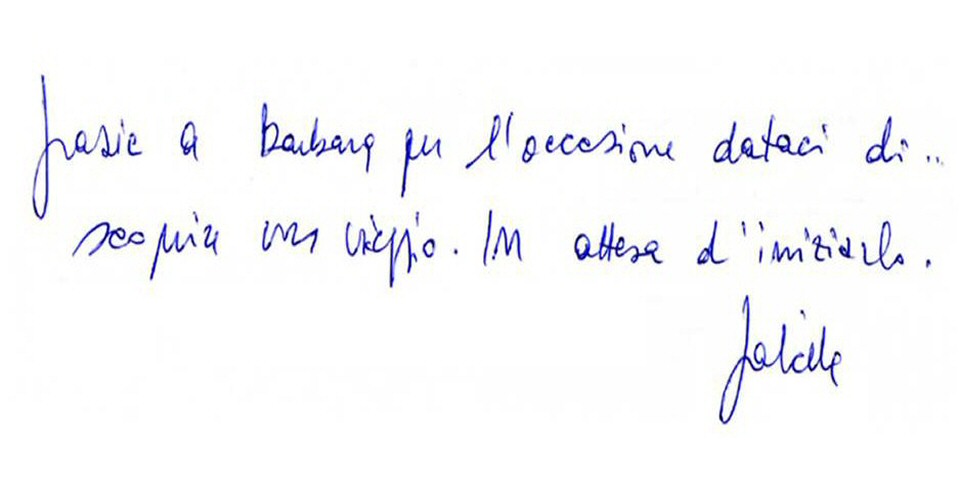 Grazie a Barbara per l'occasione dataci di..
scoprire un viaggio. In attesa d'iniziarlo.